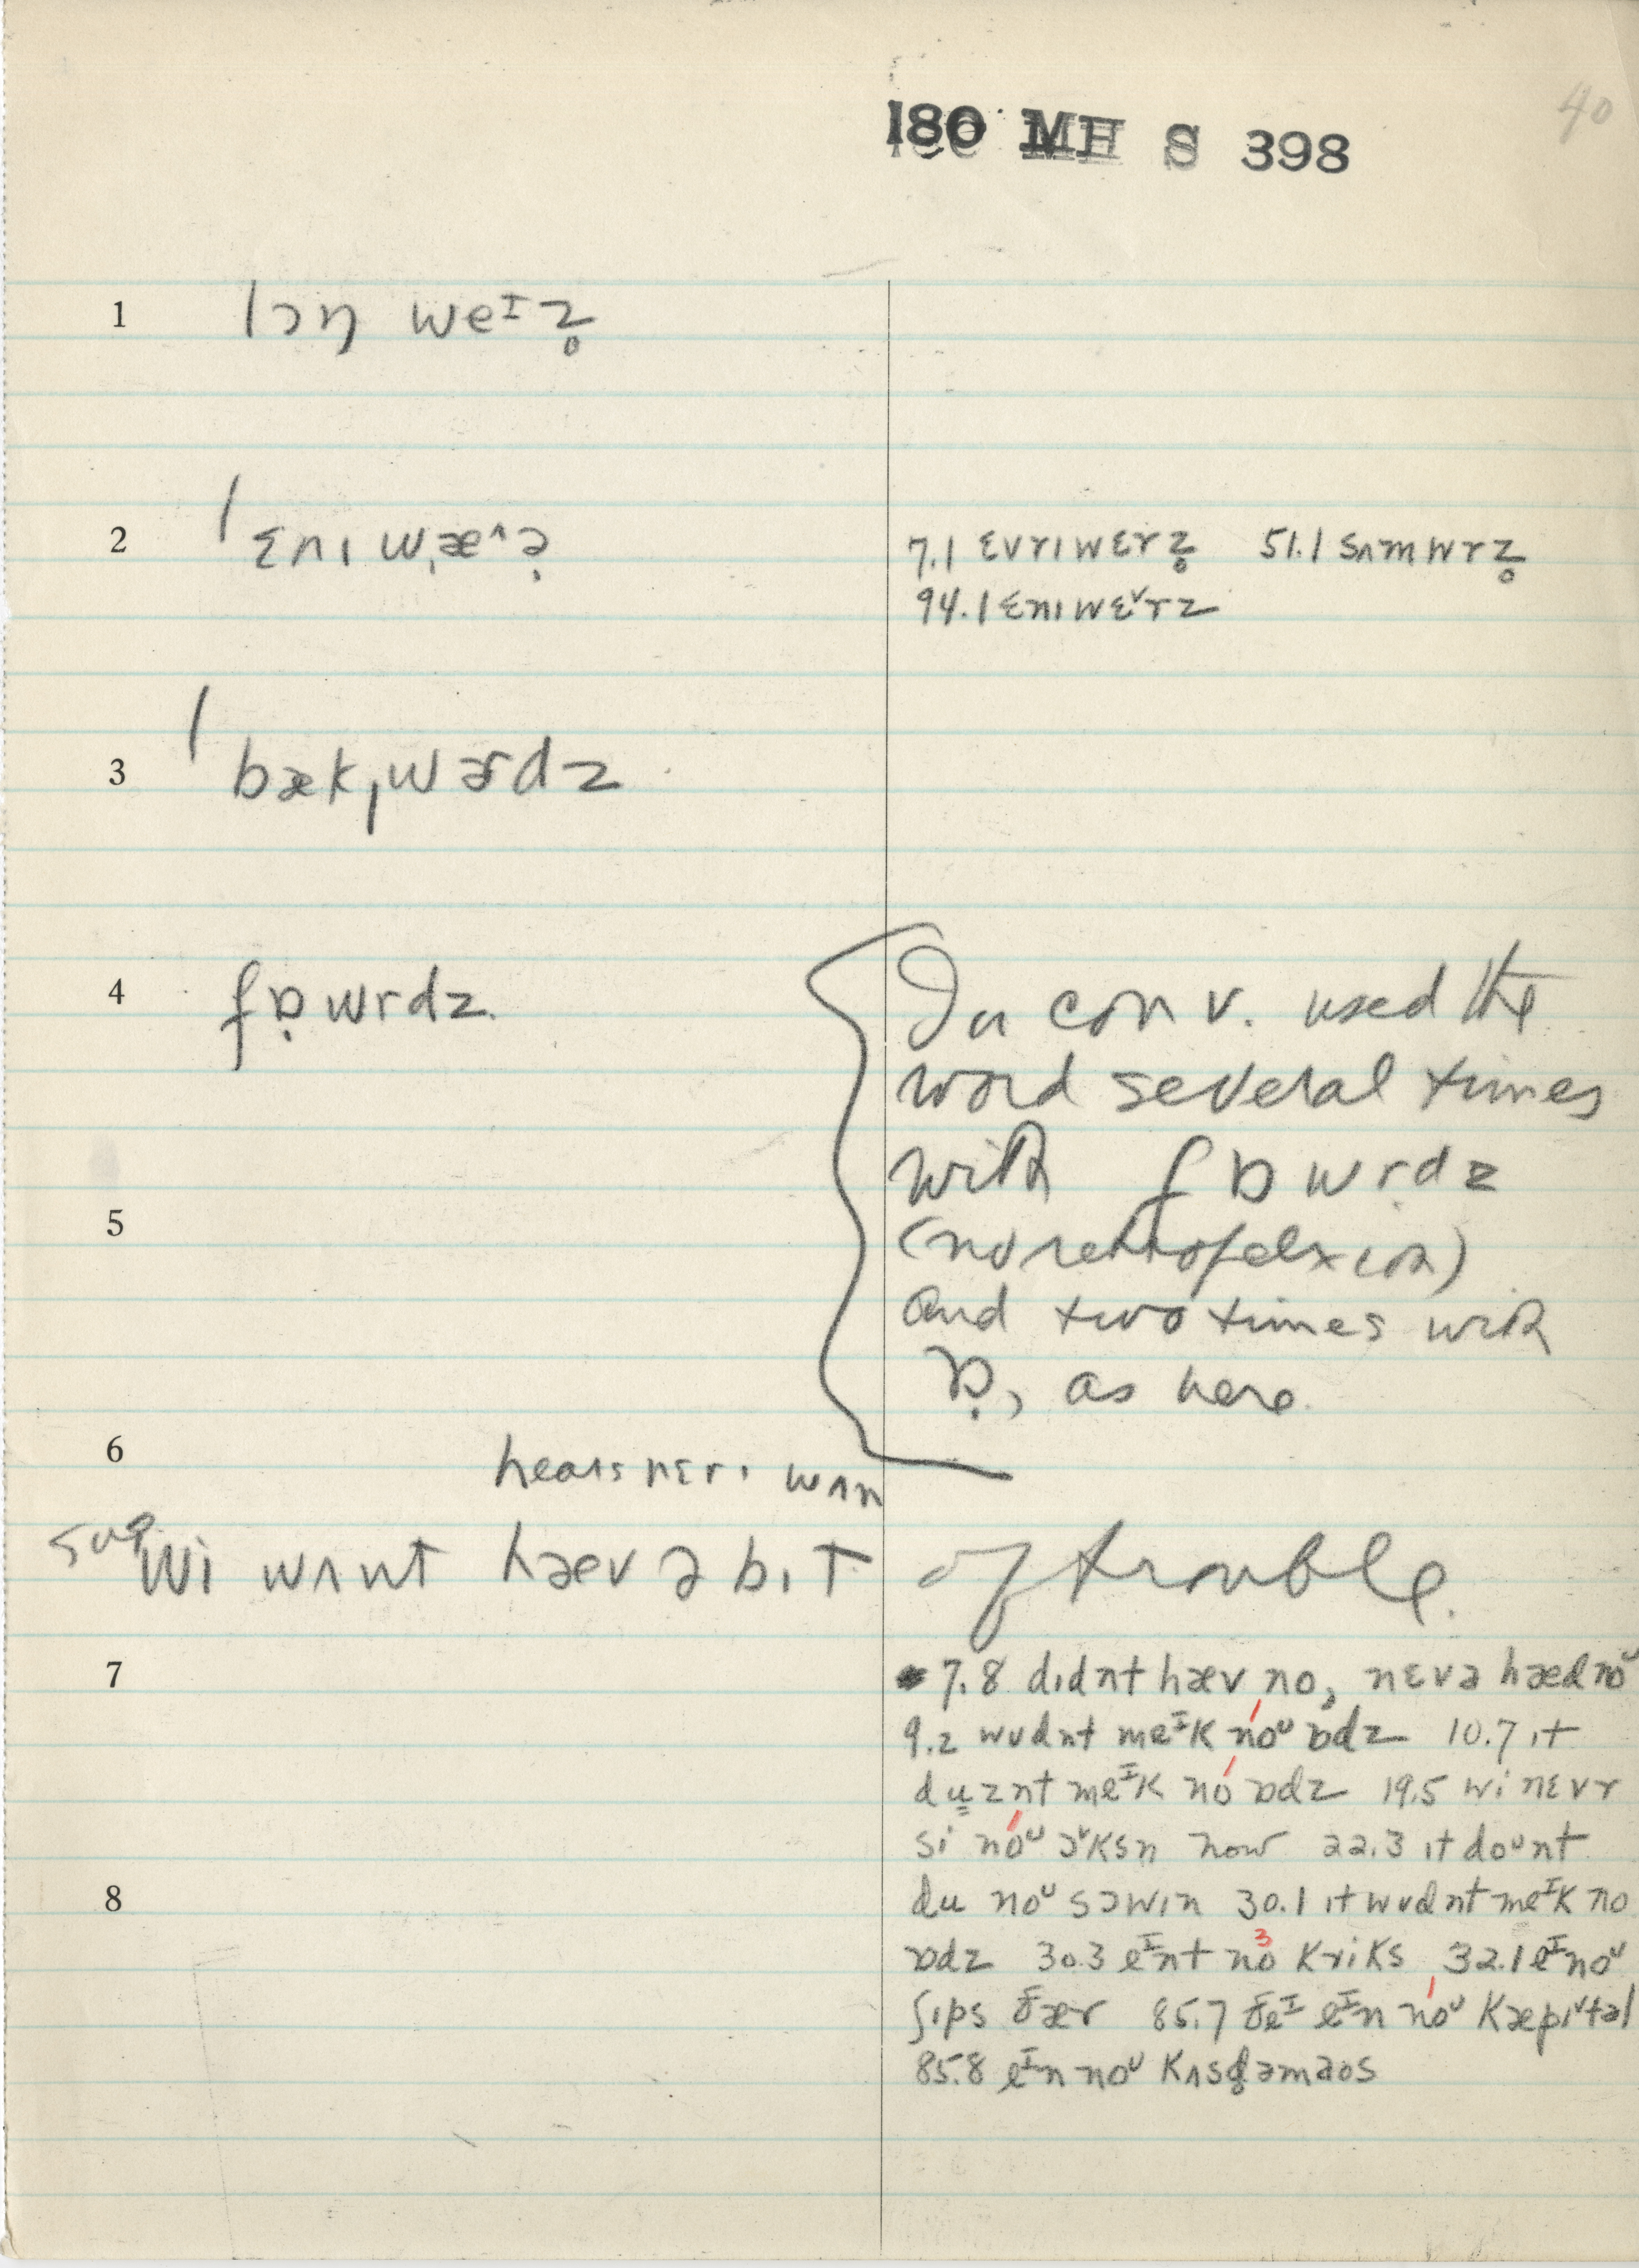 40
180 MH S 398
1 lɔŋ weᶦz̥
2 ˈɛnɪ wˌæ^ə̣
7.1 ɛvrɪwɛrz̥ 51.1 sʌmwrz̥
94.1 ɛnɪwɛ˅rz
3 ˈbækˌwɚdz
4 fɒ̣wrdz
In conv. used the
word several times
with fɒwrdz
(no retropelxion)
and two times with
ɒ̣, as here.
5
6
nɛrɪ wʌn
sug wi wʌnt hæv ə bɪt of trouble.
7
7.8 dɪdnt hæv no, nɛvə hæd noᶸ
9.2 wʊdnt meᶦk noᶸ ɒdz 10.7 ɪt
du̳znt meᶦk no ɒdz 19.5 wi nɛvr
si noᶸ ɔ˅ksn now 22.3 ɪt doᶸnt
8
du noᶸ sɔwɪn 30.1 ɪt wʊdnt meᶦk no
ɒdz 30.3 eᶦnt no kriks 32.1 eᶦnoᶸ
3
ʃɪps ðær 85.7 ðeᶦ eᶦn noᶸ kæpɪ˅təl
85.8 eᶦn noᶸ kʌsd̥əmaos